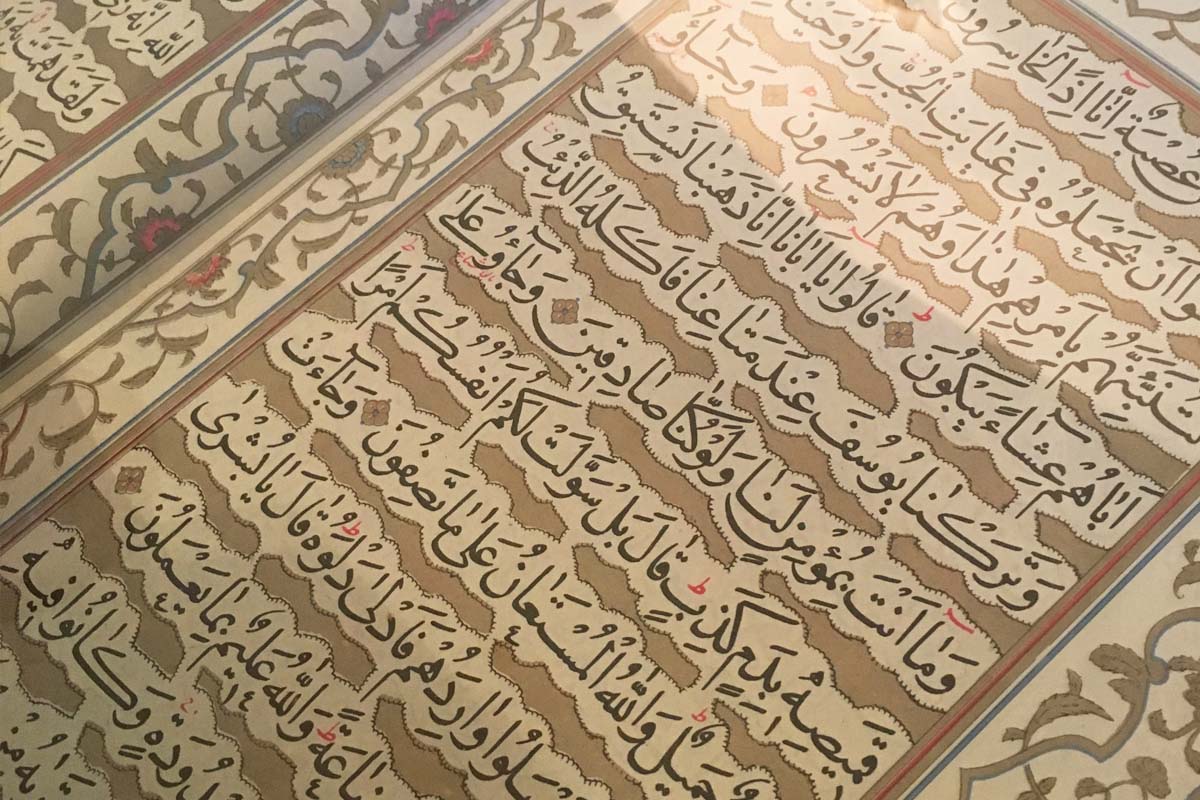 عُصْبَةٌ اِنَّا اِذًا لَخَاسِرُونَ
اَنْ يَجْعَلُوهُ فِى غَيَابَتِ الْجُبِّ وَاَوْحَيْنَا
لَتُنَبِّئَنَّهُمْ بِاَمْرِهِمْ هٰذَا وَهُمْ لَا يَشْعُرُونَ وَجَآؤُ
اَبَاهُمْ عِشَاءً يَبْكُونَ قَالُوا يَا اَبَانَا اِنَّا ذَهَبْنَا نَسْتَبِقُ
وَتَرَكْنَا يُوسُفَ عِنْدَ مَتَاعِنَا فَاَكَلَهُ الذِّئْبُ
وَمَا اَنْتَ بِمُؤْمِنٍ لَنَا وَلَوْ كُنَّا صَادِقِينَ وَجَآؤُ عَلٰى
قَمِيصِهِ بِدَمٍ كَذِبٍ قَالَ بَلْ سَوَّلَتْ لَكُمْ اَنْفُسُكُمْ اَمْرًا
جَمِيلٌ وَاللّٰهُ الْمُسْتَعَانُ عَلٰى مَا تَصِفُونَ وَجَآءَتْ
وَارِدَهُمْ فَاَدْلٰى دَلْوَهُ قَالَ يَا بُشْرٰى
وَاللّٰهُ عَلِيمٌ بِمَا يَعْمَلُونَ
وَكَانُوا فِيهِ
اللّٰهِ اِنَّهُ
وَلَقَدْ هَمَّتْ بِهِ